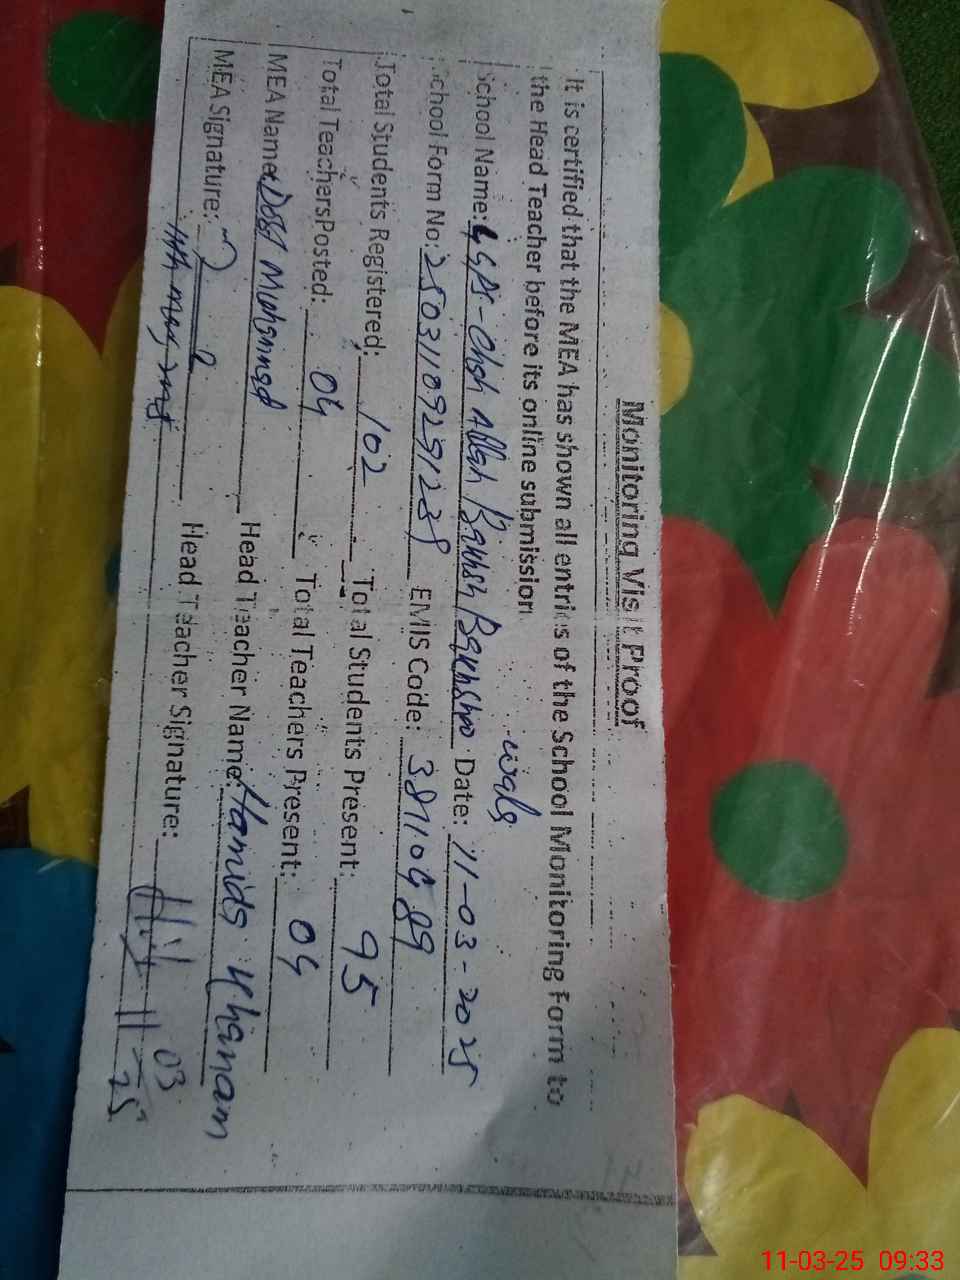 Monitoring Visit Proof
It is certified that the MEA has shown all entries of the School Monitoring Form to
the Head Teacher before its online submission
wala
School Name: GGPS-Chah Allah Bakhsh Date: 11-03-2025
School Form No: EMIS Code: 38110489
Total Students Registered: 102 Total Students Present: 95
Total Teachers Posted: 04 Total Teachers Present: 04
MEA Name: Dost Muhammad Head Teacher Name: Hamida Khanam
MEA Signature: Head Teacher Signature:
03
25
11-03-25 09:33